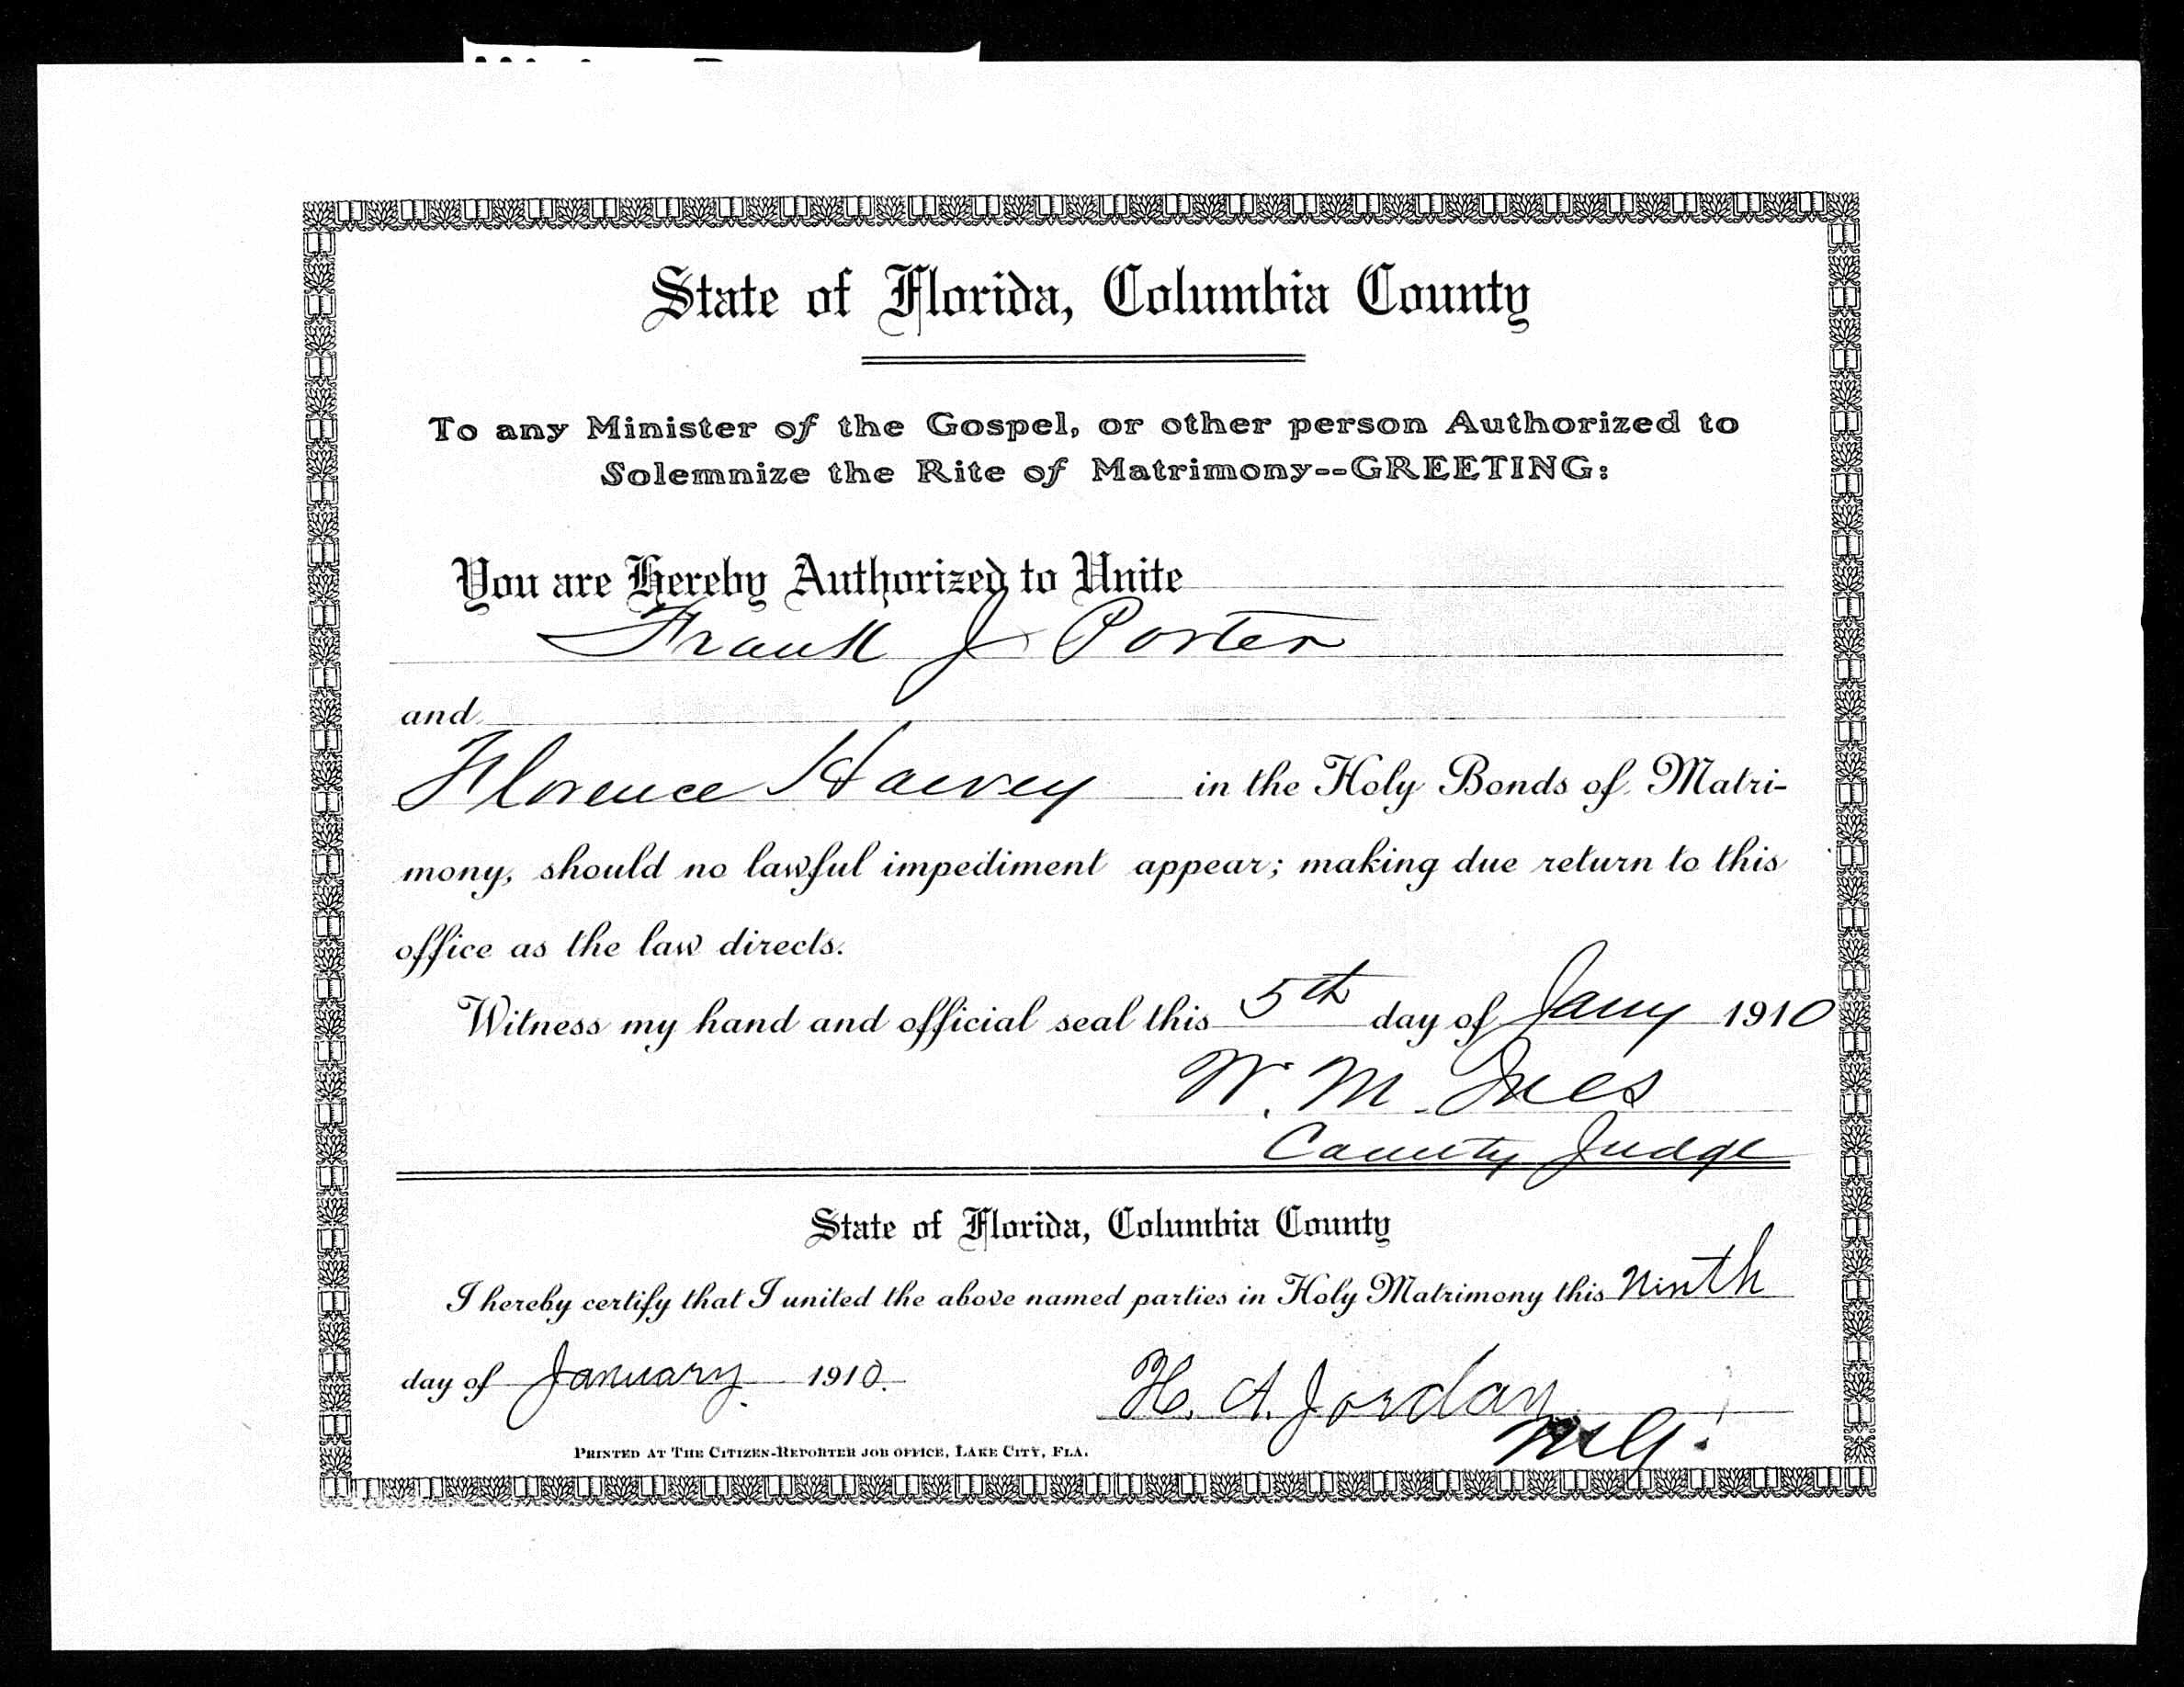 State of Florida, Columbia County
To any Minister of the Gospel, or other person Authorized to
Solemnize the Rite of Matrimony--GREETING:
You are Hereby Authorized to Unite
Frank J Porter
and
Florence Harvey in the Holy Bonds of Matri-
mony, should no lawful impediment appear; making due return to this
office as the law directs.
Witness my hand and official seal this 5th day of Jany 1910
W. M. Ives
County Judge
State of Florida, Columbia County
I hereby certify that I united the above named parties in Holy Matrimony this Ninth
day of January 1910.
H. A. Jordan
M.G.
PRINTED AT THE CITIZEN-REPORTER JOB OFFICE, LAKE CITY, FLA.